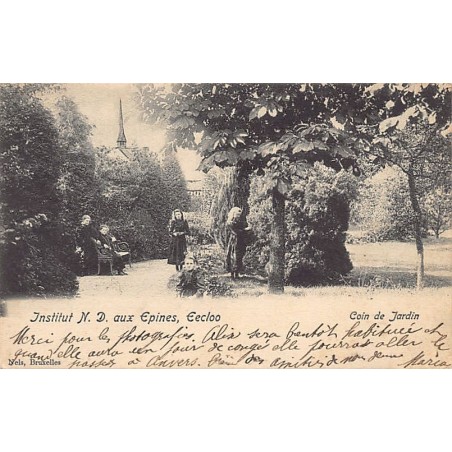 Institut N. D. aux Epines, Eecloo
Coin de Jardin
Merci pour les photografies. Alix sera bentôt habituée et
quand elle aura un jour de congé elle pourras aller le
passer à Anvers. Bien des amitiés de nous deux
Maria
Nels, Bruxelles